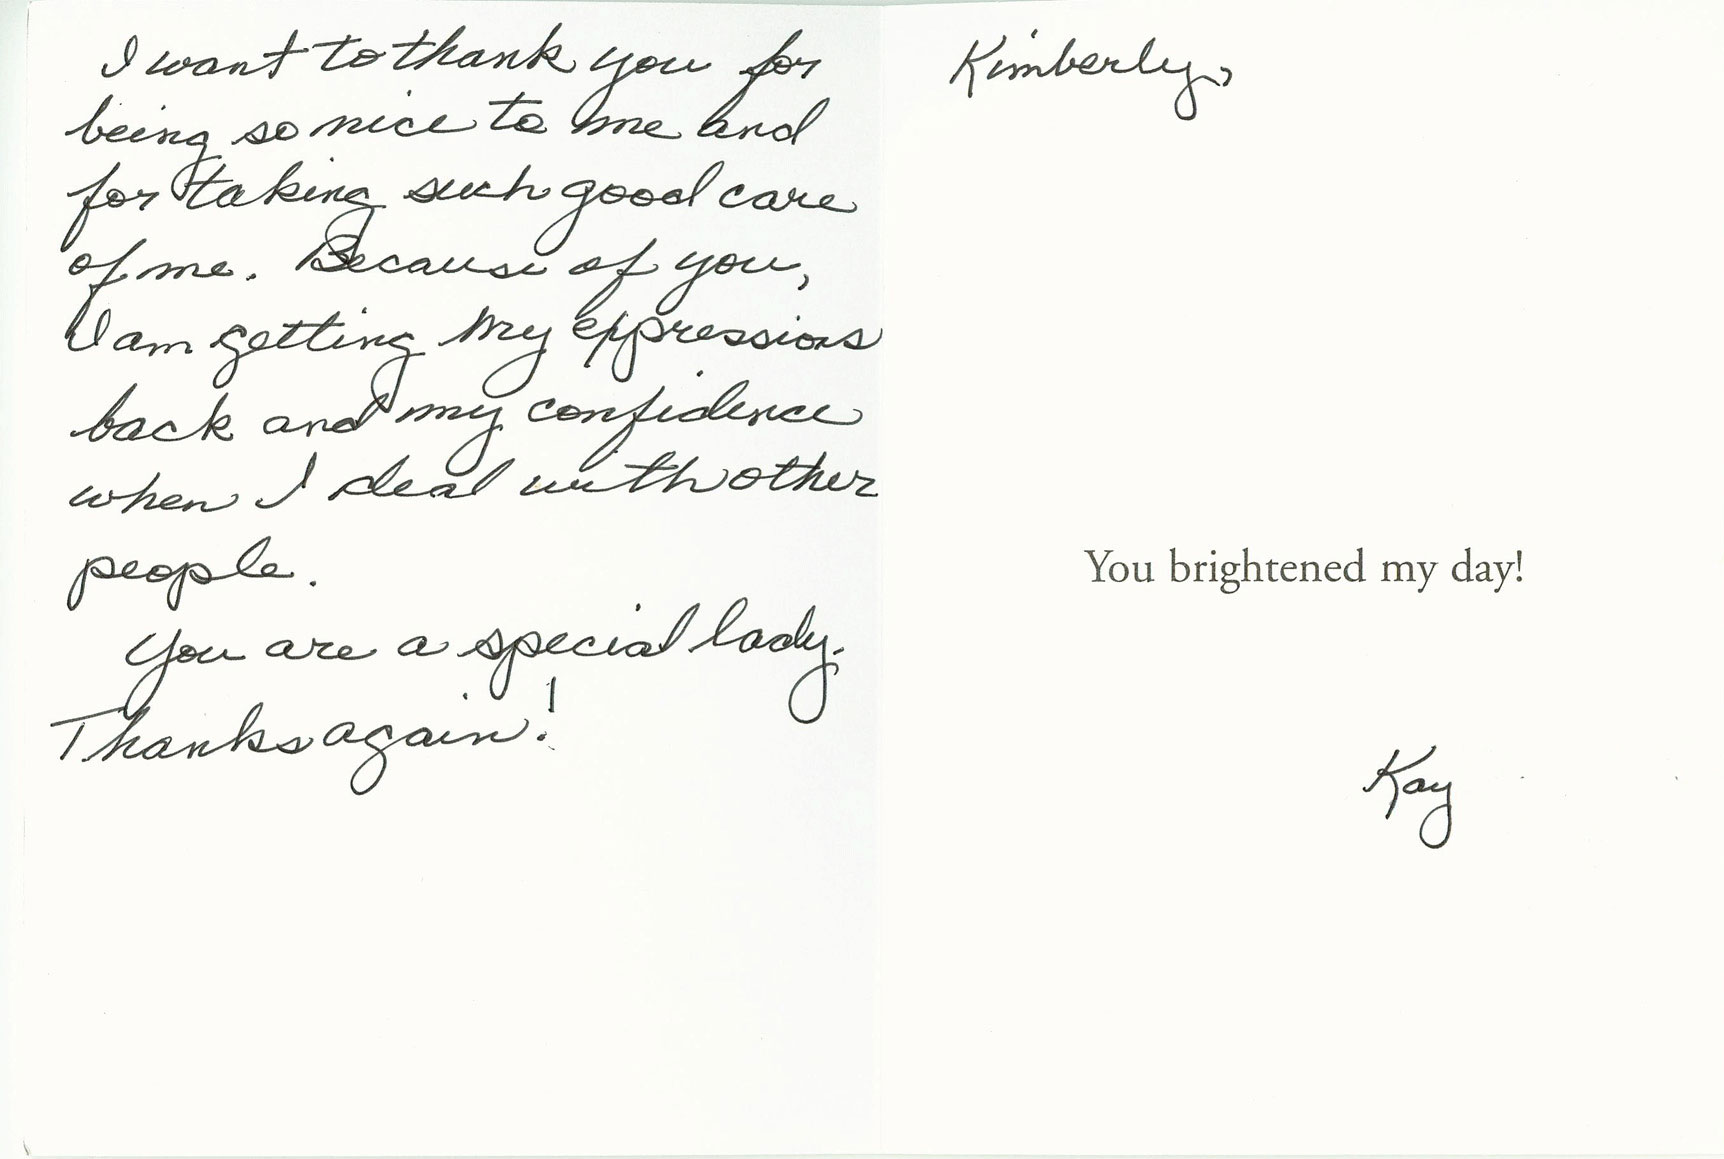 I want to thank you for
being so nice to me and
for taking such good care
of me. Because of you,
I am getting my expressions
back and my confidence
when I deal with other
people.
You are a special lady.
Thanks again!
Kimberly,
You brightened my day!
Kay